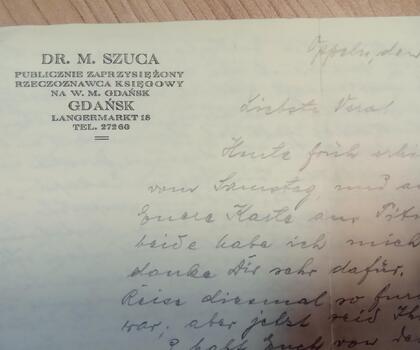 DR. M. SZUCA
PUBLICZNIE ZAPRZYSIĘŻONY
RZECZOZNAWCA KSIĘGOWY
NA W. M. GDAŃSK
GDAŃSK
LANGERMARKT 18
TEL. 27266
Oppeln, den
Liebste Vera!
Heute früh
vom Samstag, und
Euere Karte aus
beide habe ich mich
danke Dir sehr dafür.
Reise diesmal so
war; aber jetzt seid Ihr
habt Euch von